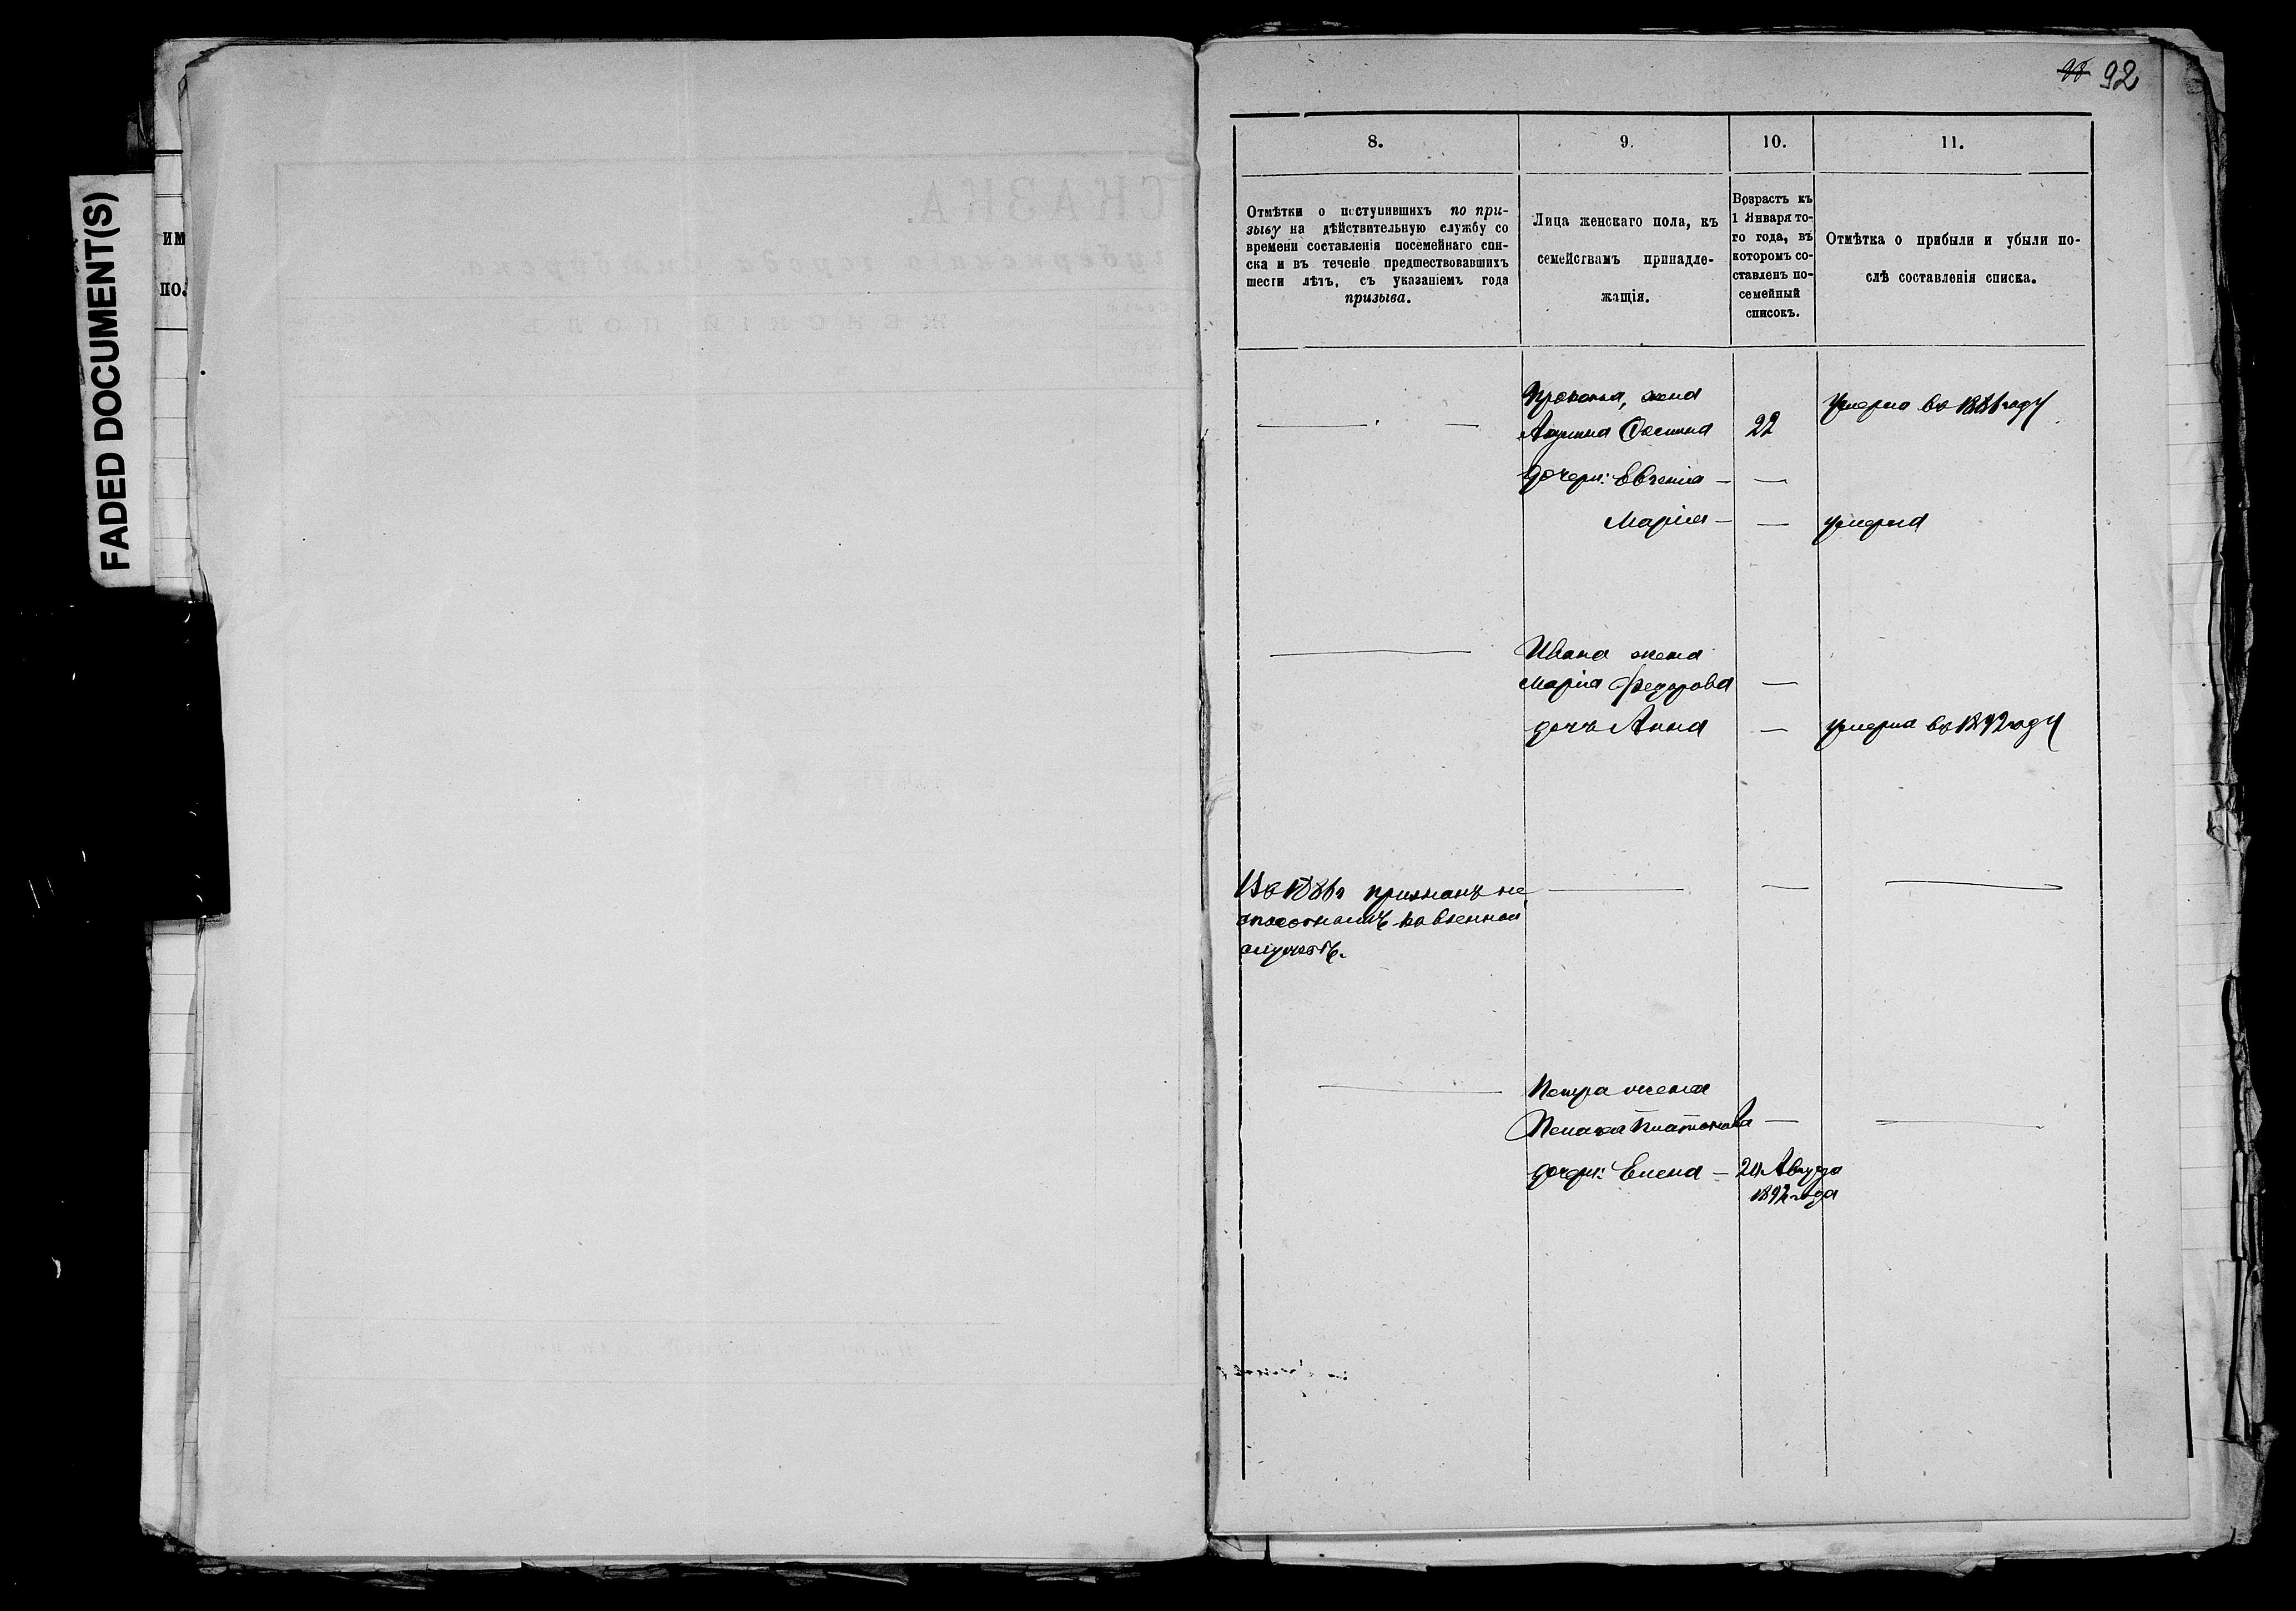 FADED DOCUMENT(S)
ИМ
ПО.
92
8.
9.
10.
11.
Отмѣтки о поступившихъ по при-
зыву на дѣйствительную службу со
времени составленія посемейнаго спи-
ска и въ теченіе предшествовавшихъ
шести лѣтъ, съ указаніемъ года
призыва.
Лица женскаго пола, къ
семействамъ принадле-
жащія.
Возрастъ къ
1 Января то-
го года, въ
которомъ со-
ставленъ по-
семейный
списокъ.
Отмѣтка о прибыли и убыли по-
слѣ составленія списка.
жена
22
умерла въ 1881 году
дочери: Евгенія — —
Марія — — умерла
Ивана жена
Марія Федорова —
дочь Анна — умерла въ 1892 году
Въ 1886 г признанъ не
способнымъ къ военной
службѣ.
Петра жена
Пелагея Платонова —
дочери: Елена — 20 Августа
1892 года